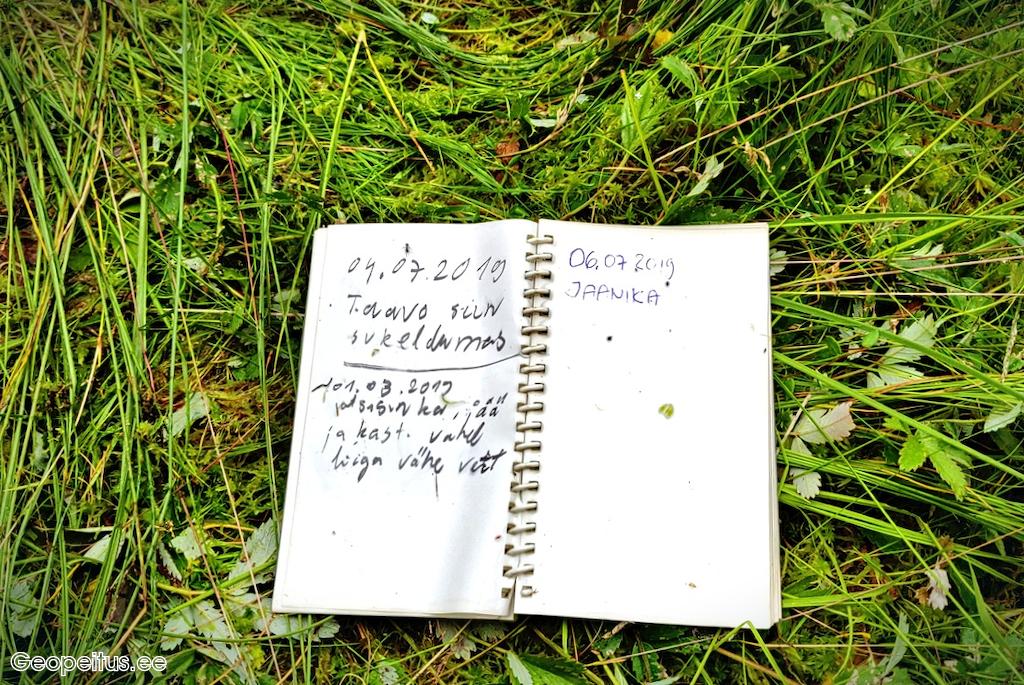 04.07.2019
Taavo siin
sukeldumas
01.03.2019
ka, jää
ja kast. vahel
liiga vähe vett
06.07.2019
JAANIKA
Geopeitus.ee